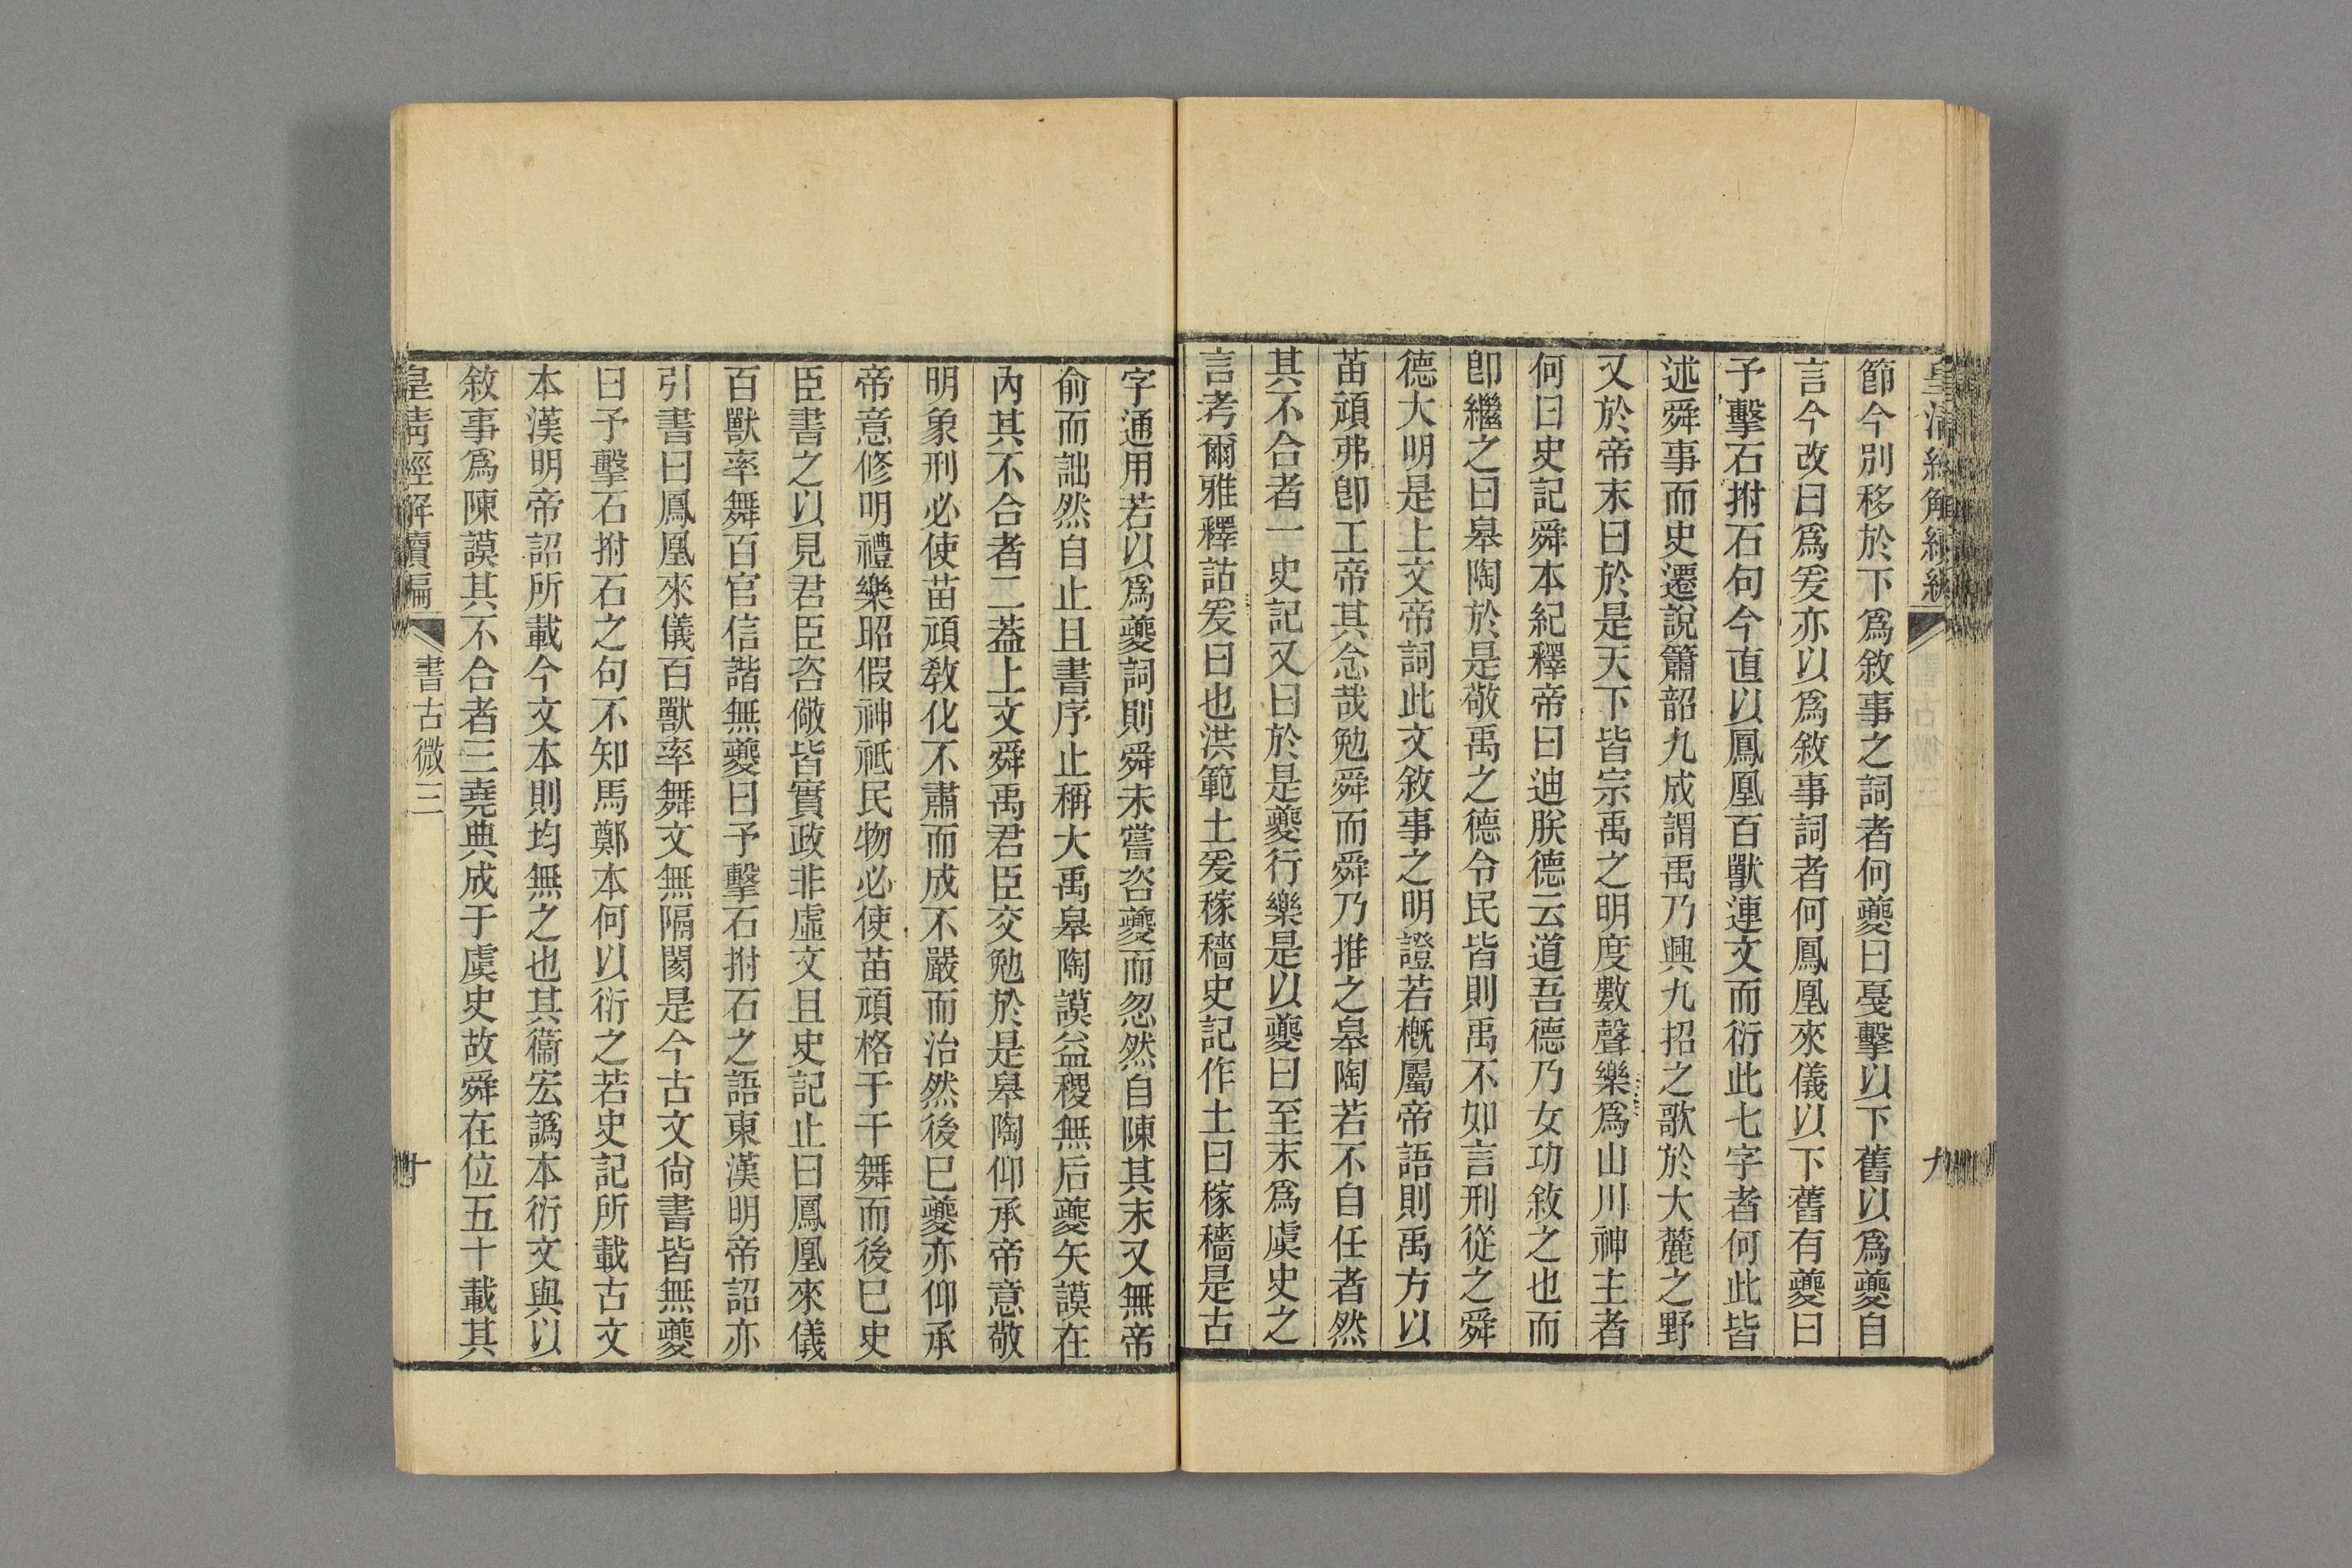 皇清經解續編
九
節今別移於下爲敘事之詞者何夔曰戞擊以下舊以爲夔自
言今改曰爲爰亦以爲敘事詞者何鳳凰來儀以下舊有夔曰
予擊石拊石句今直以鳳凰百獸連文而衍此七字者何此皆
述舜事而史遷說簫韶九成謂禹乃興九招之歌於大麓之野
又於帝末曰於是天下皆宗禹之明度數聲樂爲山川神主者
何曰史記舜本紀釋帝曰迪朕德云道吾德乃女功敘之也而
卽繼之曰皋陶於是敬禹之德令民皆則禹不如言刑從之舜
德大明是上文帝詞此文敘事之明證若槪屬帝語則禹方以
苗頑弗卽工帝其念哉勉舜而舜乃推之皋陶若不自任者然
其不合者一史記又曰於是夔行樂是以夔曰至末爲虞史之
言考爾雅釋詁爰曰也洪範土爰稼穡史記作土曰稼穡是古
字通用若以爲夔詞則舜未嘗咨夔而忽然自陳其末又無帝
俞而詘然自止且書序止稱大禹皋陶謨益稷無后夔矢謨在
內其不合者二蓋上文舜禹君臣交勉於是皋陶仰承帝意敬
明象刑必使苗頑敎化不肅而成不嚴而治然後已夔亦仰承
帝意修明禮樂昭假神祗民物必使苗頑格于干舞而後已史
臣書之以見君臣咨儆皆實政非虛文且史記止曰鳳凰來儀
百獸率舞百官信諧無夔曰予擊石拊石之語東漢明帝詔亦
引書曰鳳凰來儀百獸率舞文無隔閡是今古文尙書皆無夔
曰予擊石拊石之句不知馬鄭本何以衍之若史記所載古文
本漢明帝詔所載今文本則均無之也其衞宏譌本衍文與以
敘事爲陳謨其不合者三堯典成于虞史故舜在位五十載其
皇淸經解續編
書古微三
十